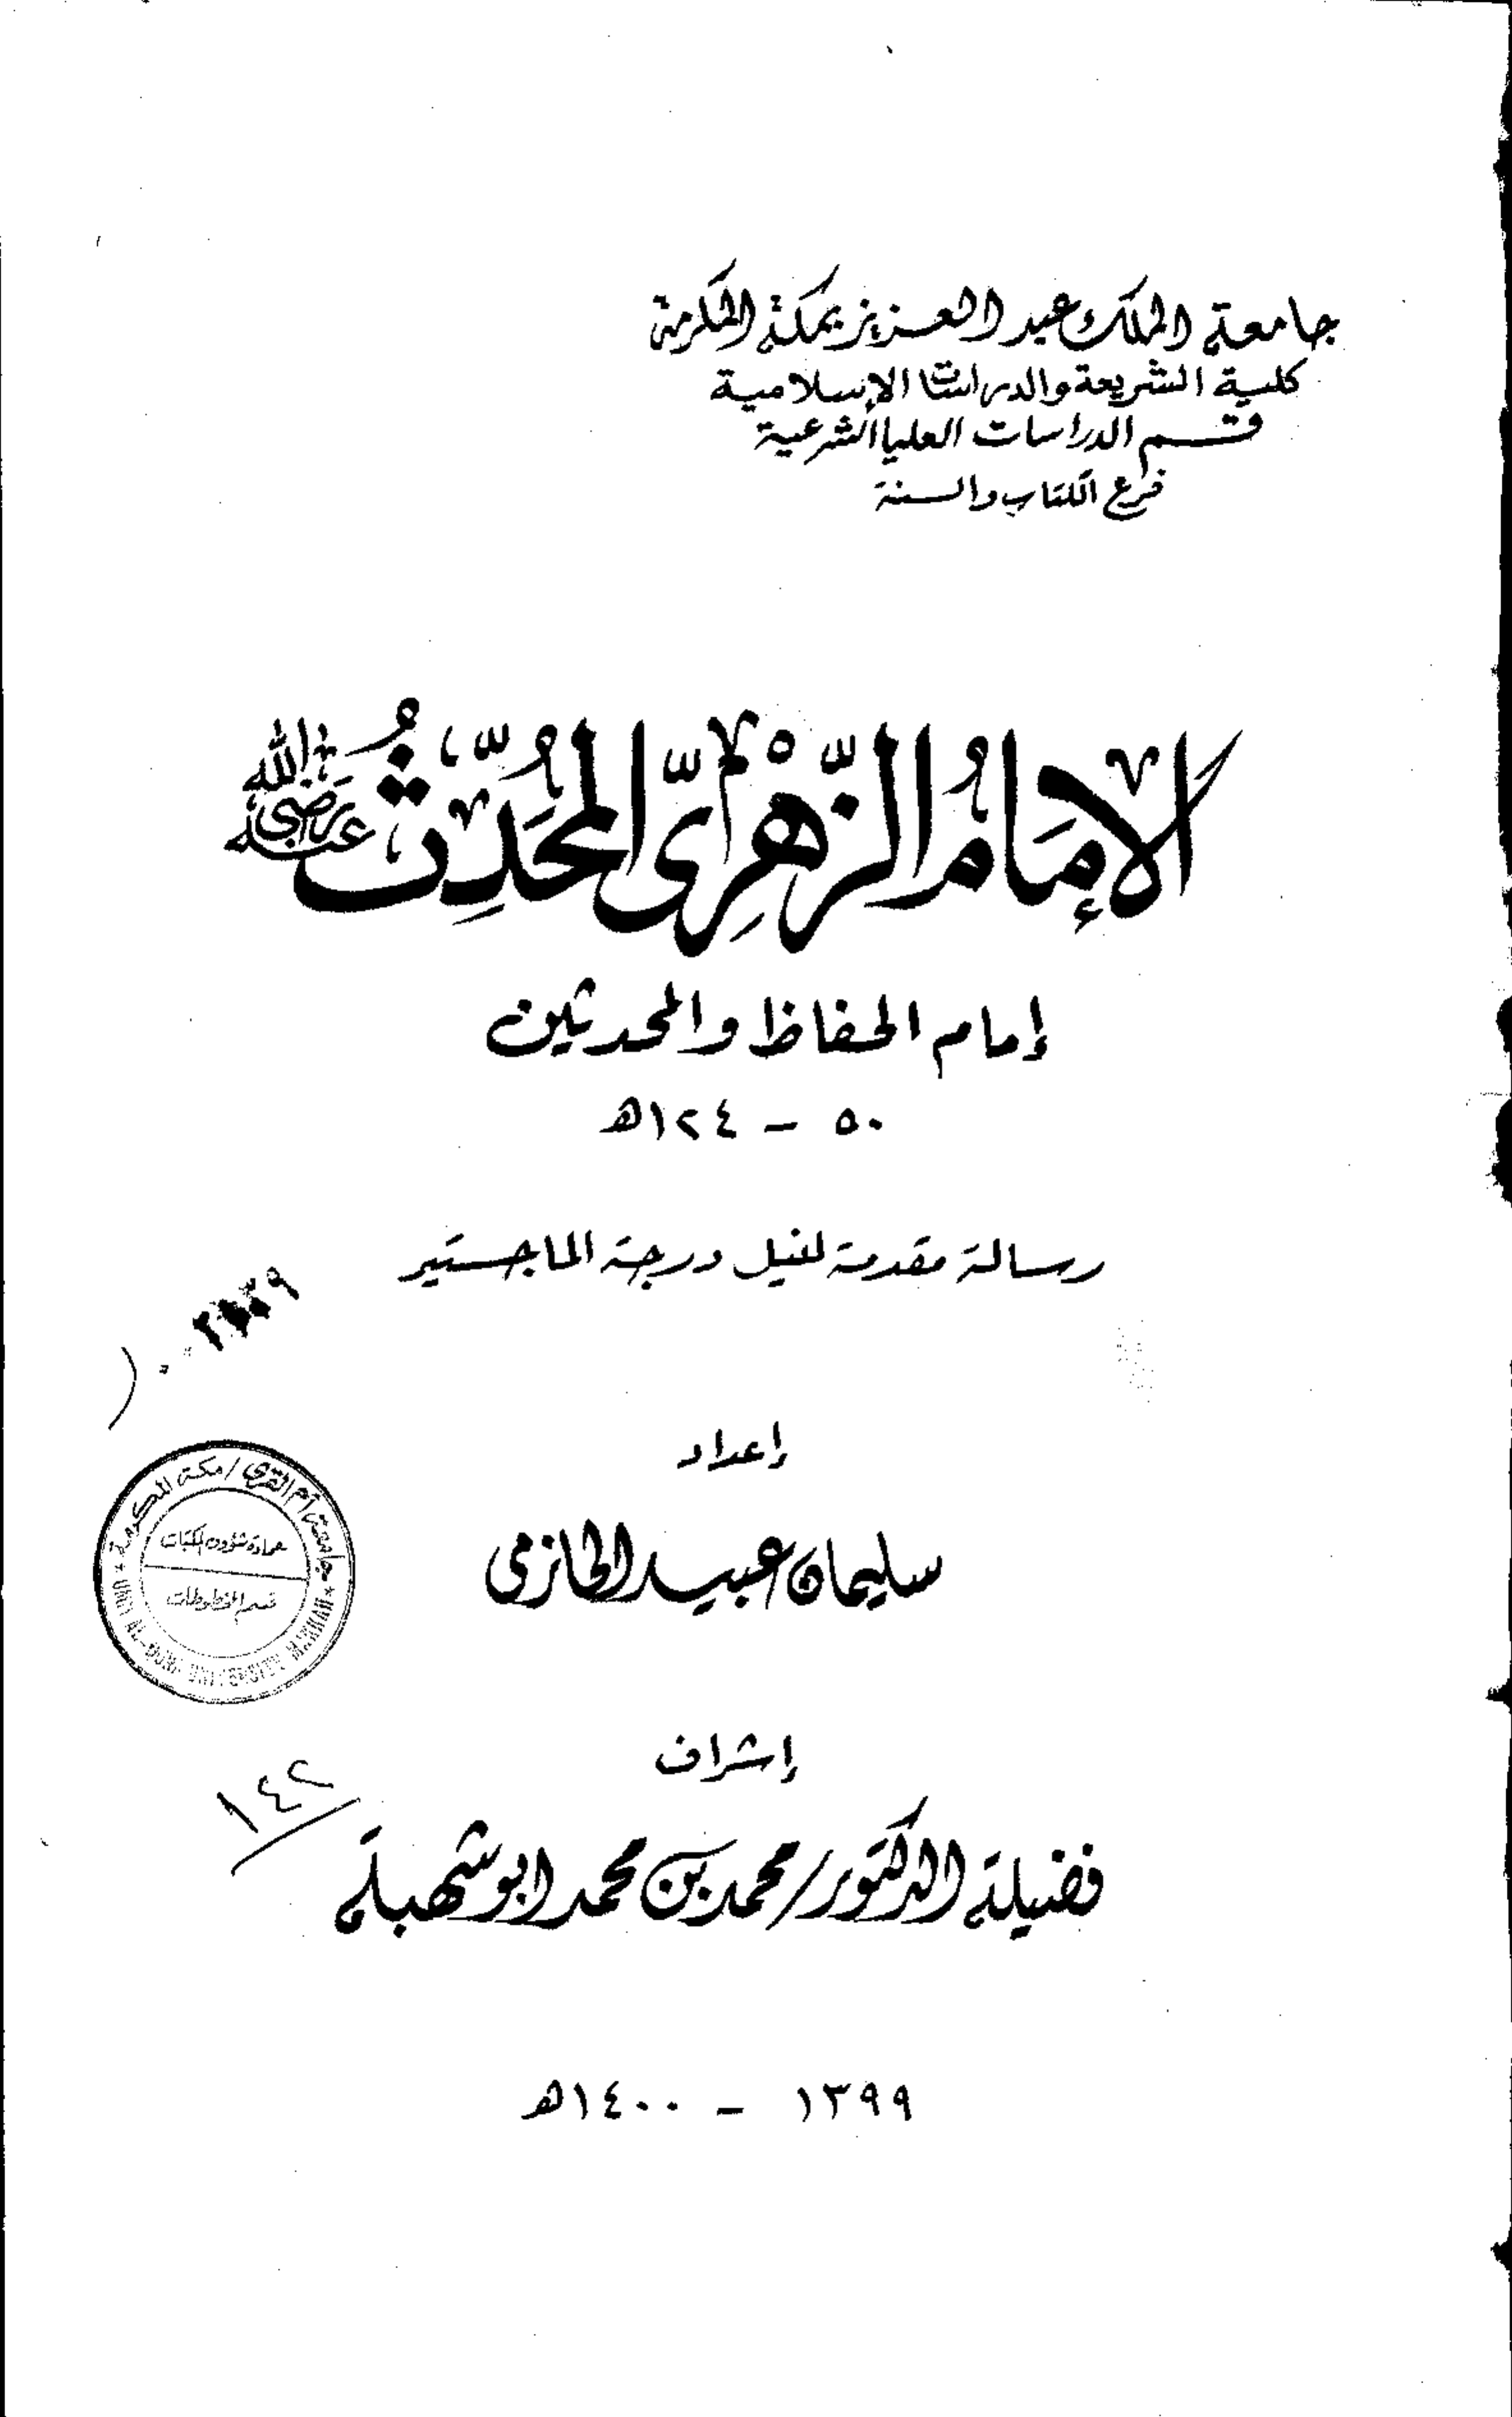 جامعة الملك عبد العزيز بمكة المكرمة
كلية الشريعة والدراسات الإسلامية
قسم الدراسات العليا الشرعية
فرع الكتاب والسنة
الإمَامُ الزُّهْرِىُّ المُحَدِّثُ رضي الله عنه
إمام الحفاظ والمحدثين
٥٠ - ١٢٤هـ
رسالة مقدمة لنيل درجة الماجستير
إعداد
سليمان عبيد الحازمى
جامعة أم القرى / مكة المكرمة
عمادة شؤون المكتبات
قسم المخطوطات
UMM AL-QURA UNIVERSITY MAKKAH
إشراف
١٤٢
فضيلة الدكتور/ محمد بن محمد ابو شهبة
١٣٩٩ - ١٤٠٠هـ